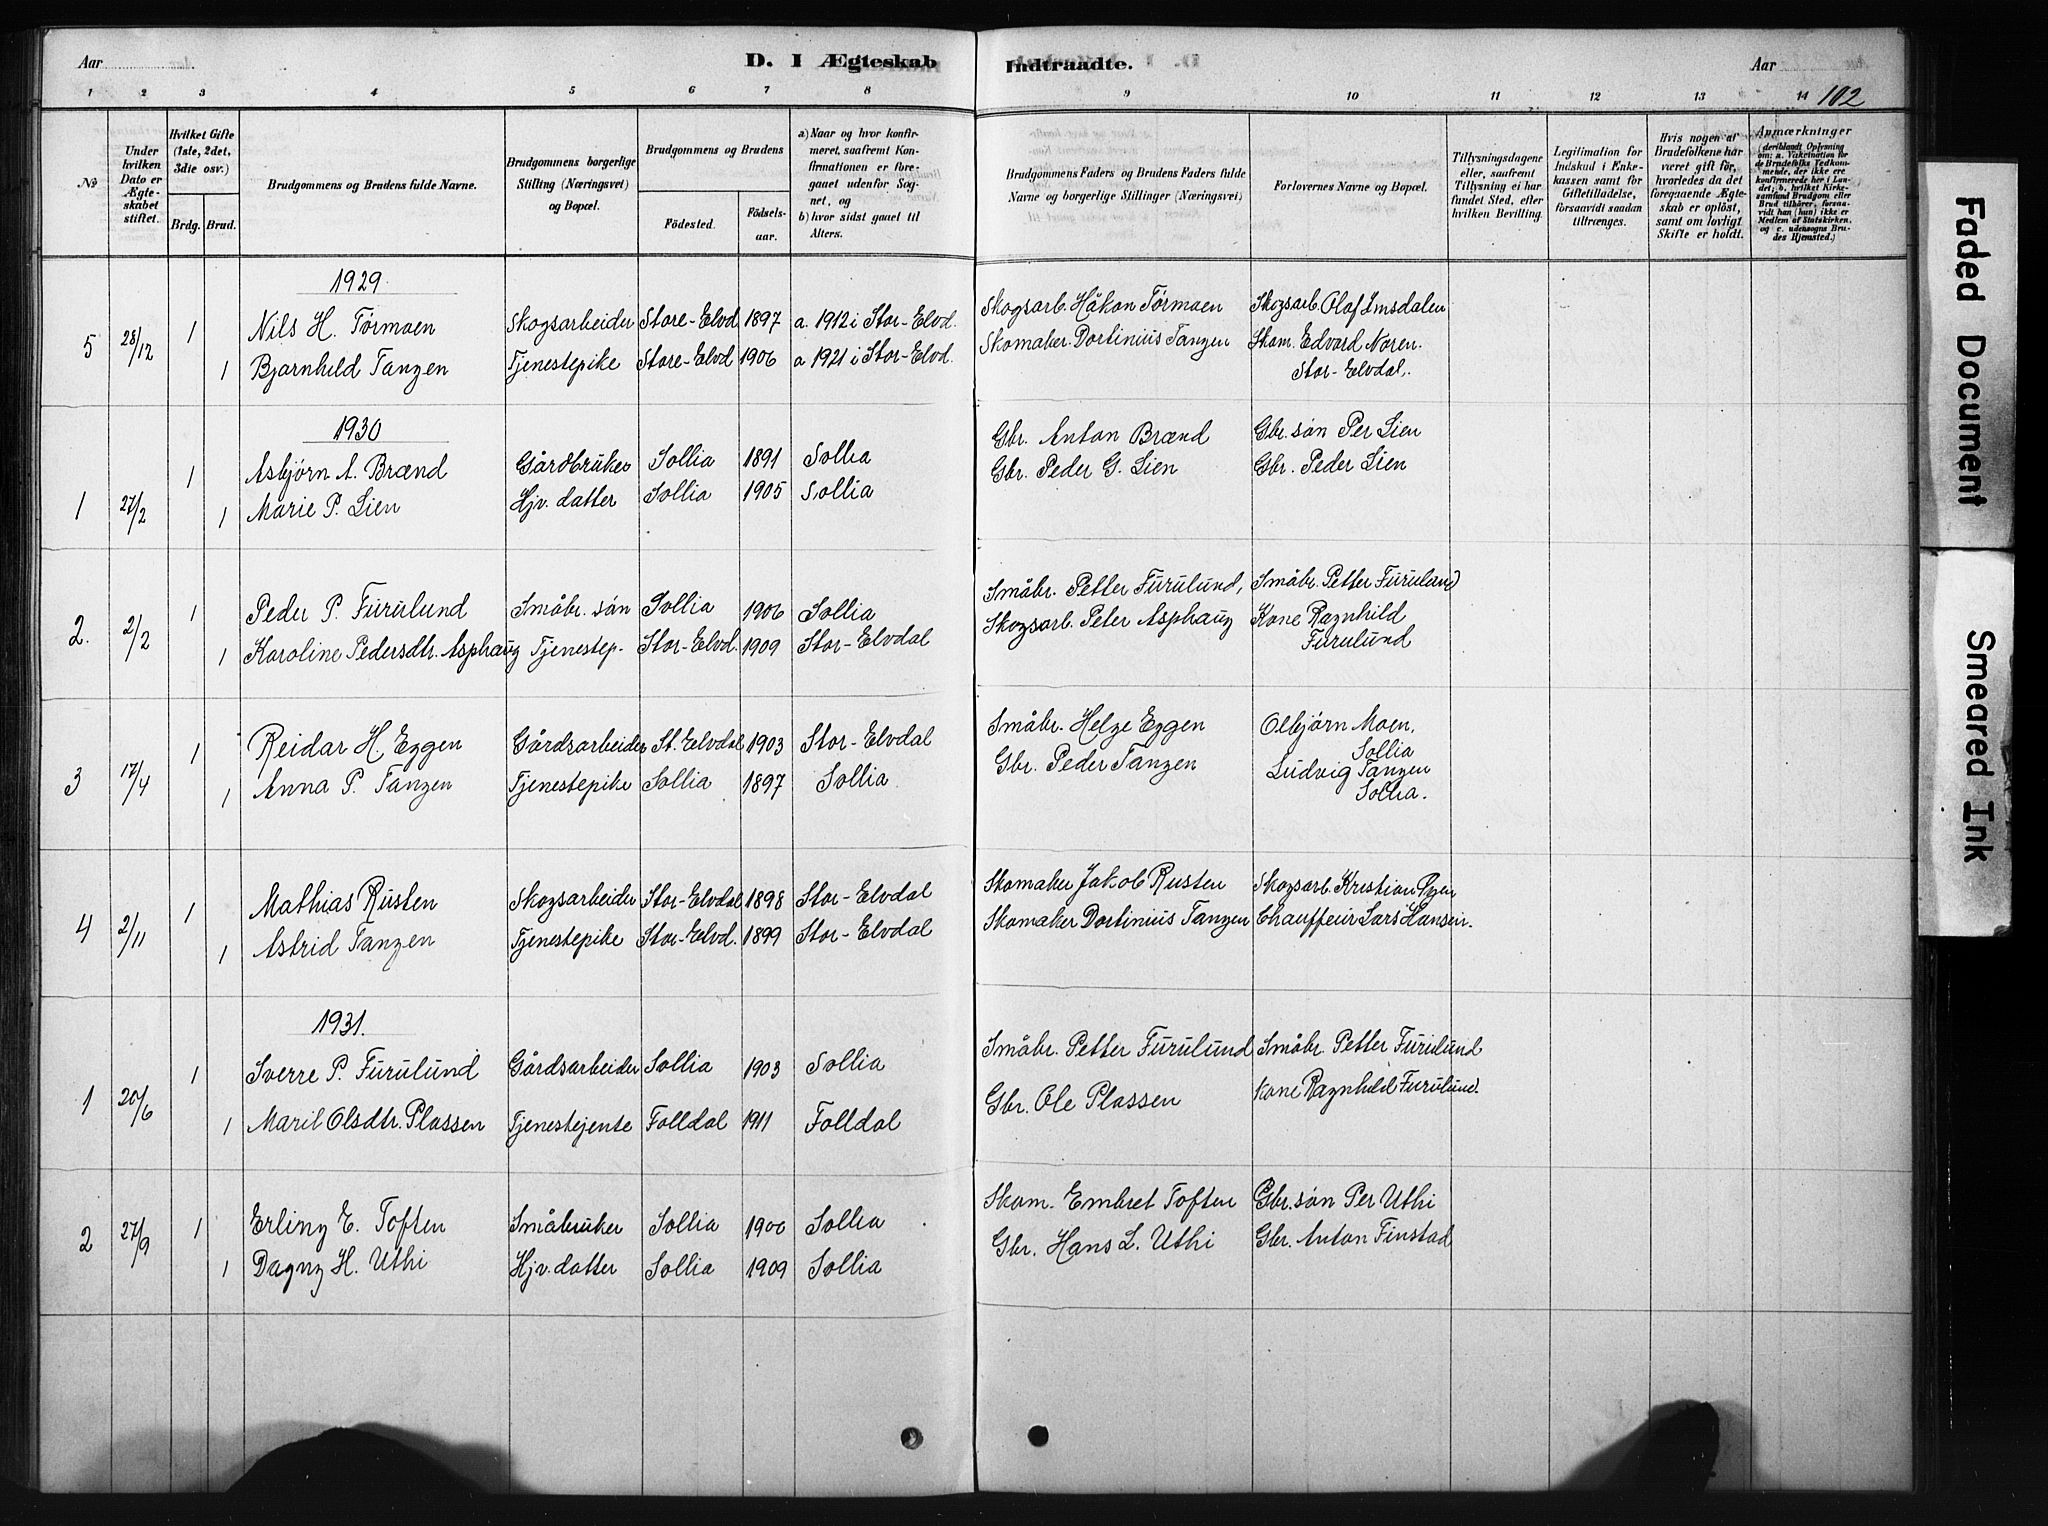 Aar D. I Ægteskab Indtraadte. Aar
1 2 3 4 5 6 7 8 9 10 11 12 13 14 102
No
Under hvilken Dato er Ægteskabet stiftet.
Hvilket Gifte (1ste, 2det, 3die osv.)
Brdg. Brud.
Brudgommens og Brudens fulde Navne.
Brudgommens borgerlige Stilling (Næringsvei) og Bopæl.
Brudgommens og Brudens
Fødested. Fødselsaar.
a) Naar og hvor konfirmeret, saafremt Konfirmationen er foregaaet udenfor Sognet, og
b) hvor sidst gaaet til Alters.
Brudgommens Faders og Brudens Faders fulde Navne og borgerlige Stillinger (Næringsvei)
Forlovernes Navne og Bopæl.
Tillysningsdagene eller, saafremt Tillysning ei har fundet Sted, efter hvilken Bevilling.
Legitimation for Indskud i Enkekassen samt for Giftetilladelse, forsaavidt saadan tiltrænges.
Hvis nogen af Brudefolkene har været gift før, hvorledes da det foregaaende Ægteskab er opløst, samt om lovligt Skifte er holdt.
Anmærkninger (deriblandt Oplysning om: a. Vakcination for de Brudefolks Vedkommende, der ikke ere konfirmerede her i Landet; b. hvilket Kirkesamfund Brudgom eller Brud tilhører, forsaavidt han (hun) ikke er Medlem af Statskirken, og c. udensogns Brudes Hjemsted.)
1929
5 28/12 1 Nils H. Tørmoen Skogsarbeider Store-Elvd. 1897 a. 1912 i Stor-Elvd. Skogsarb. Håkon Tørmoen Skogsarb. Olaf Imsdalen
1 Bjarnhild Tangen Tjenestepike Store-Elvd 1906 a 1921 i Stor-Elvd. Skomaker Dortinius Tangen Skom. Edvard Noren.
Stor-Elvdal.
1930
1 27/2 1 Asbjørn A. Brænd Gårdbruker Sollia 1891 Sollia Gbr. Anton Brænd Gbr. søn Per Lien
1 Marie P. Lien Hjv. datter Sollia 1905 Sollia Gbr. Peder G. Lien Gbr. Peder Lien
2. 2/2 1 Peder P. Furulund Småbr. søn Sollia 1906 Sollia Småbr. Petter Furulund, Småbr. Petter Furulund
1 Karoline Pedersdtr. Asphaug Tjenestep. Stor-Elvd. 1909 Stor-Elvdal Skogsarb. Peter Asphaug Kone Ragnhild
Furulund
3 17/4 1 Reidar H Eggen Gårdsarbeider St. Elvdal 1903 Stor-Elvdal Småbr. Helge Eggen Olbjørn Moen,
Sollia
1 Anna P. Tangen Tjenestepike Sollia 1897 Sollia Gbr. Peder Tangen Ludvig Tangen
Sollia.
4 2/11 1 Mathias Rusten Skogsarbeider Stor-Elvdal 1898 Stor-Elvdal Skomaker Jakob Rusten Skogsarb. Kristian Ryen
1 Astrid Tangen Tjenestepike Stor-Elvd. 1899 Stor-Elvdal Skomaker Dortinius Tangen Chauffeur Lars Hansen.
1931.
1 20/6 1 Sverre P. Furulund Gårdsarbeider Sollia 1903 Sollia Småbr. Petter Furulund Småbr. Petter Furulund
1 Marit Olsdtr. Plassen Tjenestejente Folldal 1911 Folldal Gbr. Ole Plassen Kone Ragnhild Furulund.
2 27/9 1 Erling E. Toften Småbruker Sollia 1906 Sollia Skom. Embret Toften Gbr. søn Per Uthi
1 Dagny H. Uthi Hjv. datter Sollia 1909 Sollia Gbr. Hans L. Uthi Gbr. Anton Finstad
Faded Document
Smeared Ink